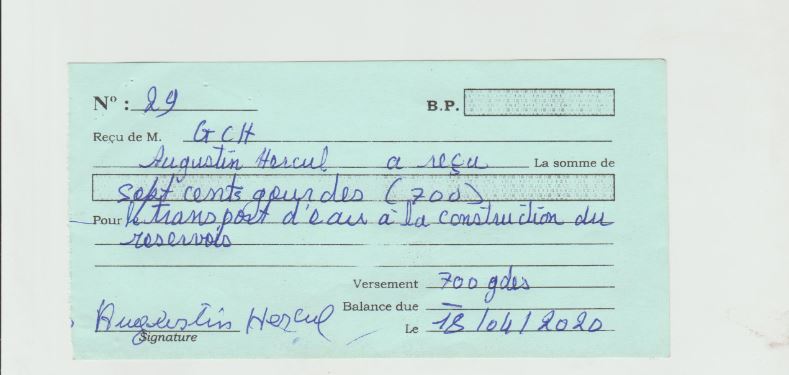 N° : 29 B.P.
Reçu de M. GCH
Augustin Hercul a reçu La somme de
sept cents gourdes (700)
Pour le transport d'eau à la construction du
reservois
Versement 700 gdes
Balance due
Augustin Hercul Le 18/04/2020
Signature